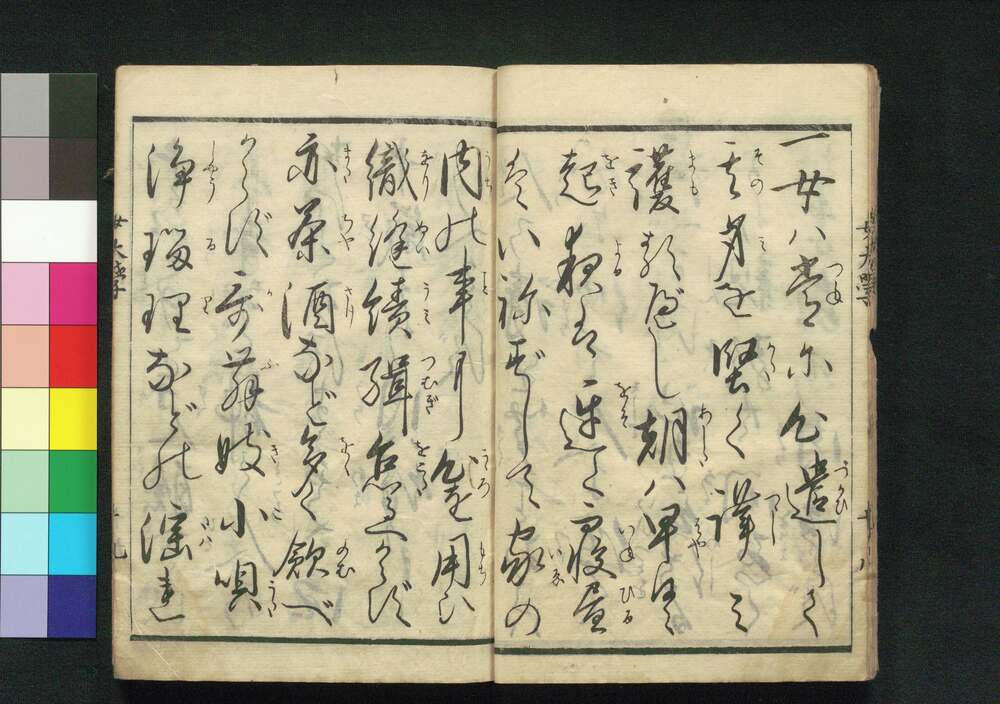 一女ハ常に心遣して
其身を堅く謹ミ
護るべし朝ハ早く
起夜は遅く寝昼
はいねずして家の
内の事に心を用ひ
織縫績緝怠べからず
亦茶酒など多く飲べ
からず哥舞妓小唄
浄瑠理などの淫れ
女大學